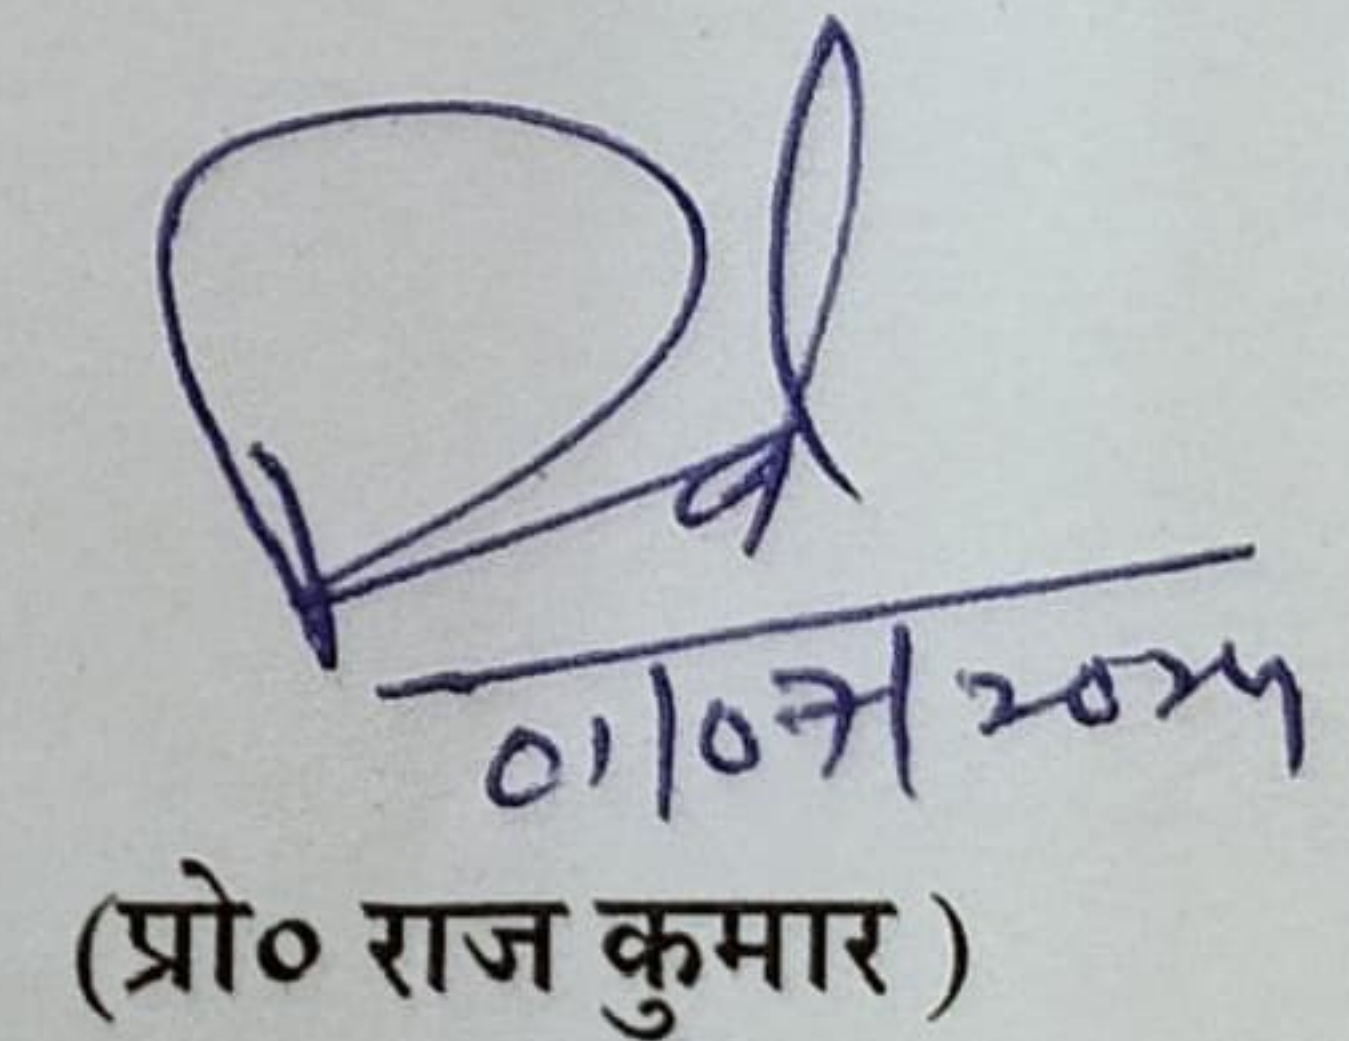 01/07/2024
(प्रो० राज कुमार )